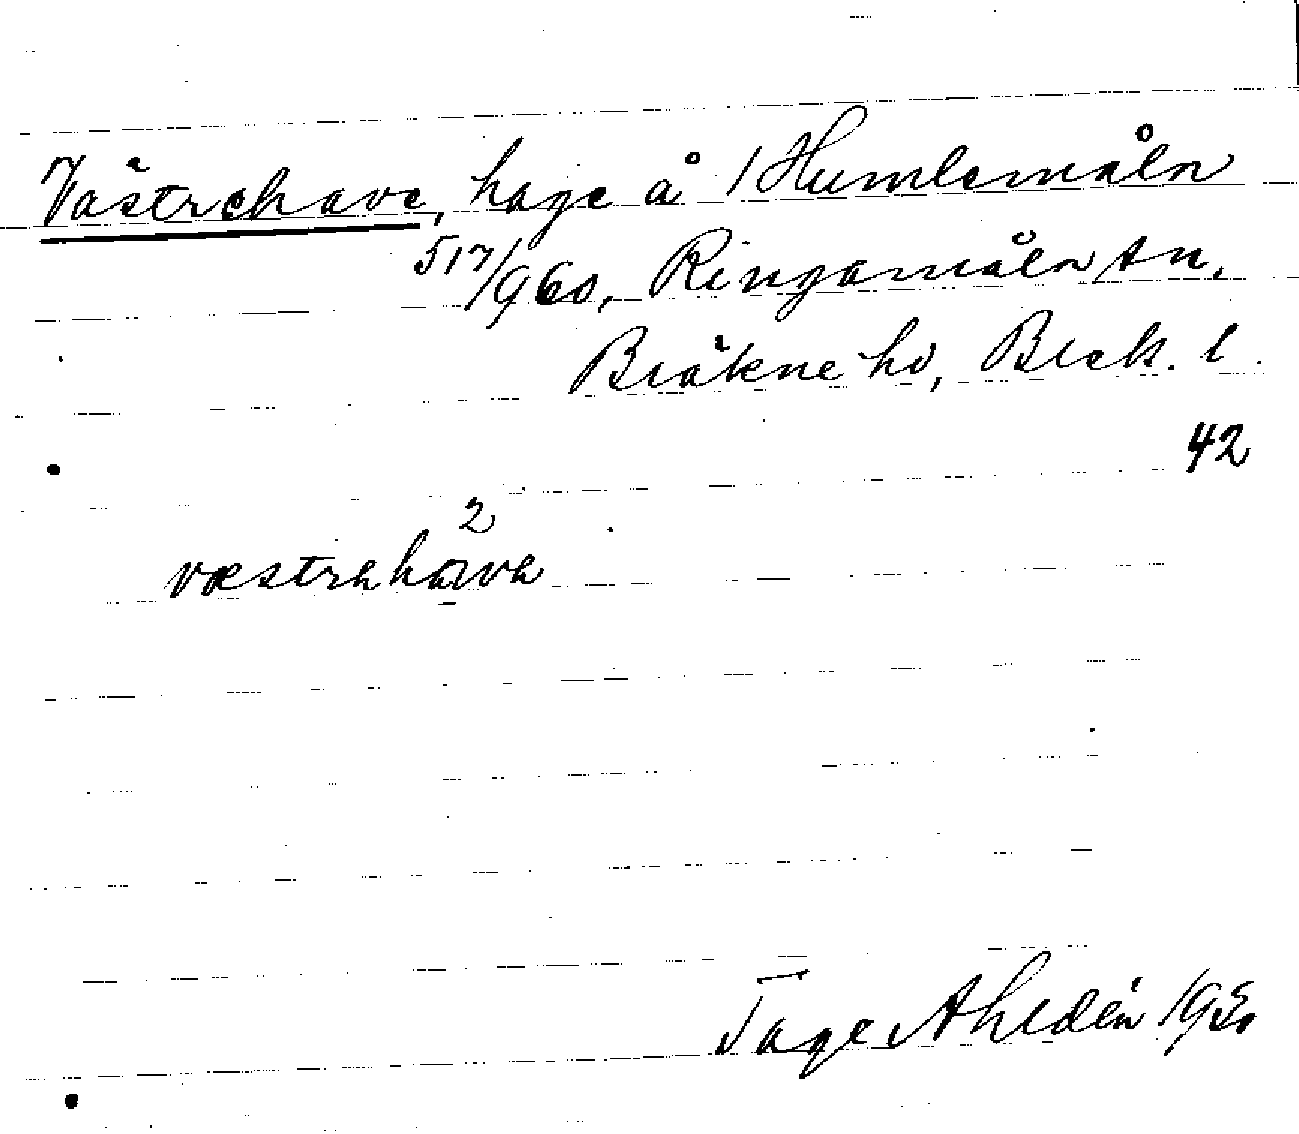 Västrehave, hage å 1 Humlemåln
517/960, Ringamåla sn,
Bräkne hd, Blek. l.
42
2
væstrahava
Tage Ahldén 1930